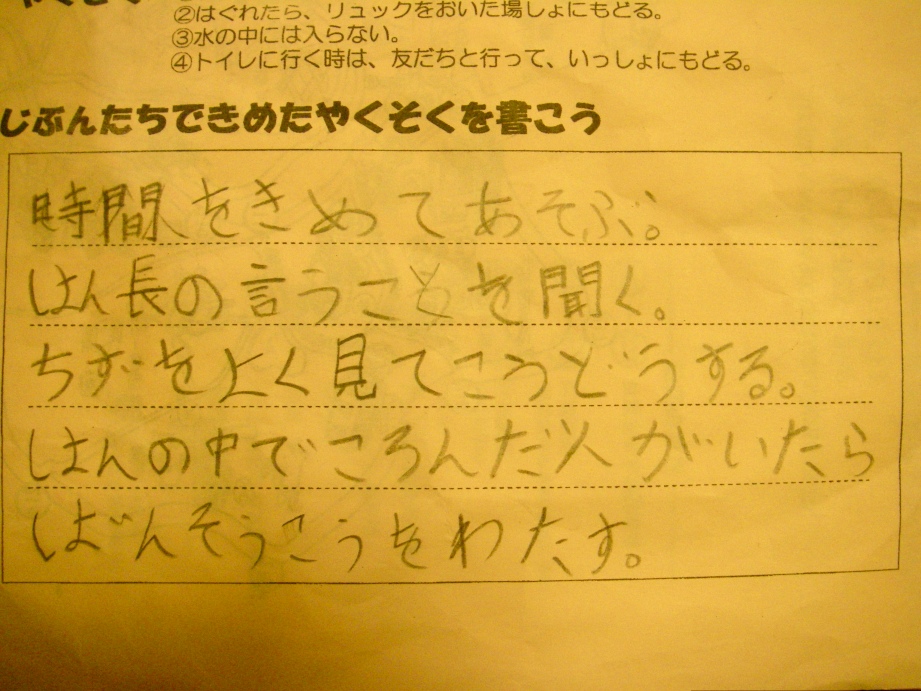 ②はぐれたら、リュックをおいた場しょにもどる。
③水の中には入らない。
④トイレに行く時は、友だちと行って、いっしょにもどる。
じぶんたちできめたやくそくを書こう
時間をきめてあそぶ。
はん長の言うことを聞く。
ちずをよく見てこうどうする。
はんの中でころんだ人がいたら
ばんそうこうをわたす。